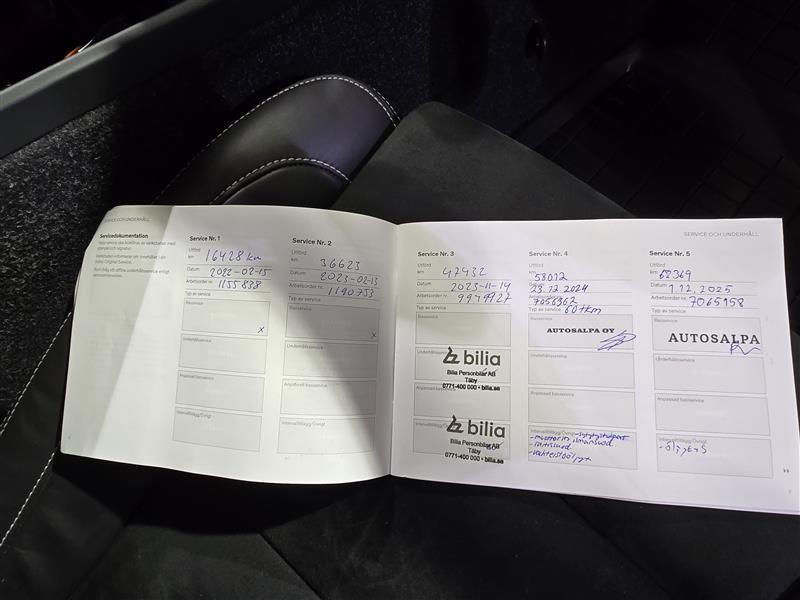 SERVICE OCH UNDERHÅLL
Servicedokumentation
Service Nr. 1
Utförd
km: 16428 km
Datum: 2022-02-15
Arbetsorder nr. 1155838
Typ av service
Basservice
x
Underhållsservice
Anpassad basservice
Intervalltillägg/Övrigt
Service Nr. 2
Utförd
km: 36623
Datum: 2023-02-13
Arbetsorder nr. 1190753
Typ av service
Basservice
x
Underhållsservice
Anpassad basservice
Intervalltillägg/Övrigt
SERVICE OCH UNDERHÅLL
Service Nr. 3
Utförd
km: 47432
Datum: 2023-11-14
Arbetsorder nr.
Typ av service
Basservice
Underhållsservice
bilia
Bilia Personbilar AB
Täby
0771-400 000 • bilia.se
Anpassad basservice
Intervalltillägg/Övrigt
bilia
Bilia Personbilar AB
Täby
0771-400 000 • bilia.se
Service Nr. 4
Utförd
km: 58012
Datum: 23.12.2024
Arbetsorder nr. 7056362
Typ av service 60tkm
Basservice
AUTOSALPA OY
Underhållsservice
Anpassad basservice
Intervalltillägg/Övrigt
-moottorin ilmansuod
Service Nr. 5
Utförd
km: 68369
Datum: 1.12.2025
Arbetsorder nr. 7065158
Typ av service
Basservice
AUTOSALPA
Underhållsservice
Anpassad basservice
Intervalltillägg/Övrigt
7